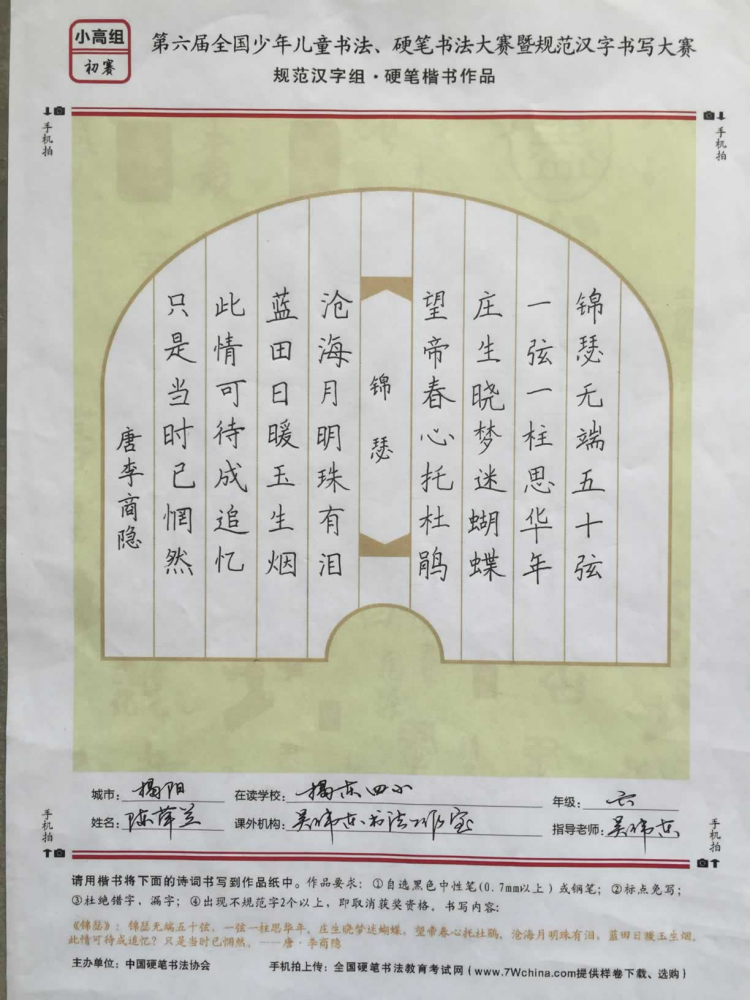 小高组
初赛
第六届全国少年儿童书法、硬笔书法大赛暨规范汉字书写大赛
规范汉字组·硬笔楷书作品
手机拍
手机拍
锦瑟无端五十弦
一弦一柱思华年
庄生晓梦迷蝴蝶
望帝春心托杜鹃
锦瑟
沧海月明珠有泪
蓝田日暖玉生烟
此情可待成追忆
只是当时已惘然
唐李商隐
城市：揭阳 在读学校：揭东四小 年级：六
姓名：陈萍兰 课外机构：吴伟东书法工作室 指导老师：吴伟东
手机拍
手机拍
请用楷书将下面的诗词书写到作品纸中。作品要求：①自选黑色中性笔(0.7mm以上)或钢笔；②标点免写；
③杜绝错字，漏字；④出现不规范字2个以上，即取消获奖资格。书写内容：
《锦瑟》：锦瑟无端五十弦，一弦一柱思华年。庄生晓梦迷蝴蝶，望帝春心托杜鹃。沧海月明珠有泪，蓝田日暖玉生烟。
此情可待成追忆？只是当时已惘然。——唐·李商隐
主办单位：中国硬笔书法协会 手机拍上传：全国硬笔书法教育考试网（www.7Wchina.com提供样卷下载、选购）